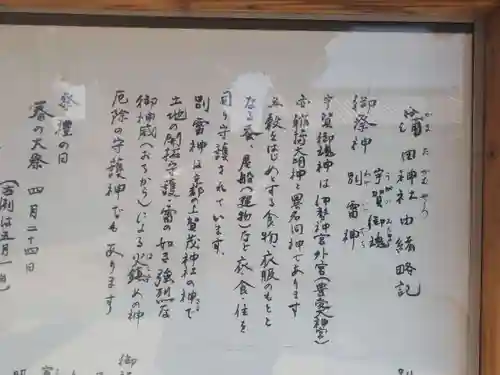 蒲田神社由緒略記
御祭神 宇賀御魂
別雷神
宇賀御魂神は伊勢神宮外宮(豊受大神宮)
亦稲荷大明神と異名同神であります
五穀をはじめとする食物、衣服のもとと
なる蚕、居処(建物)など衣・食・住を
司り守護されています。
別雷神は京都の上賀茂神社の神で
土地の開拓守護・雷の如き強烈な
御神威(おちから)による火鎮めの神
厄除の守護神でもあります
祭禮の日
春の大祭 四月二十四日
御